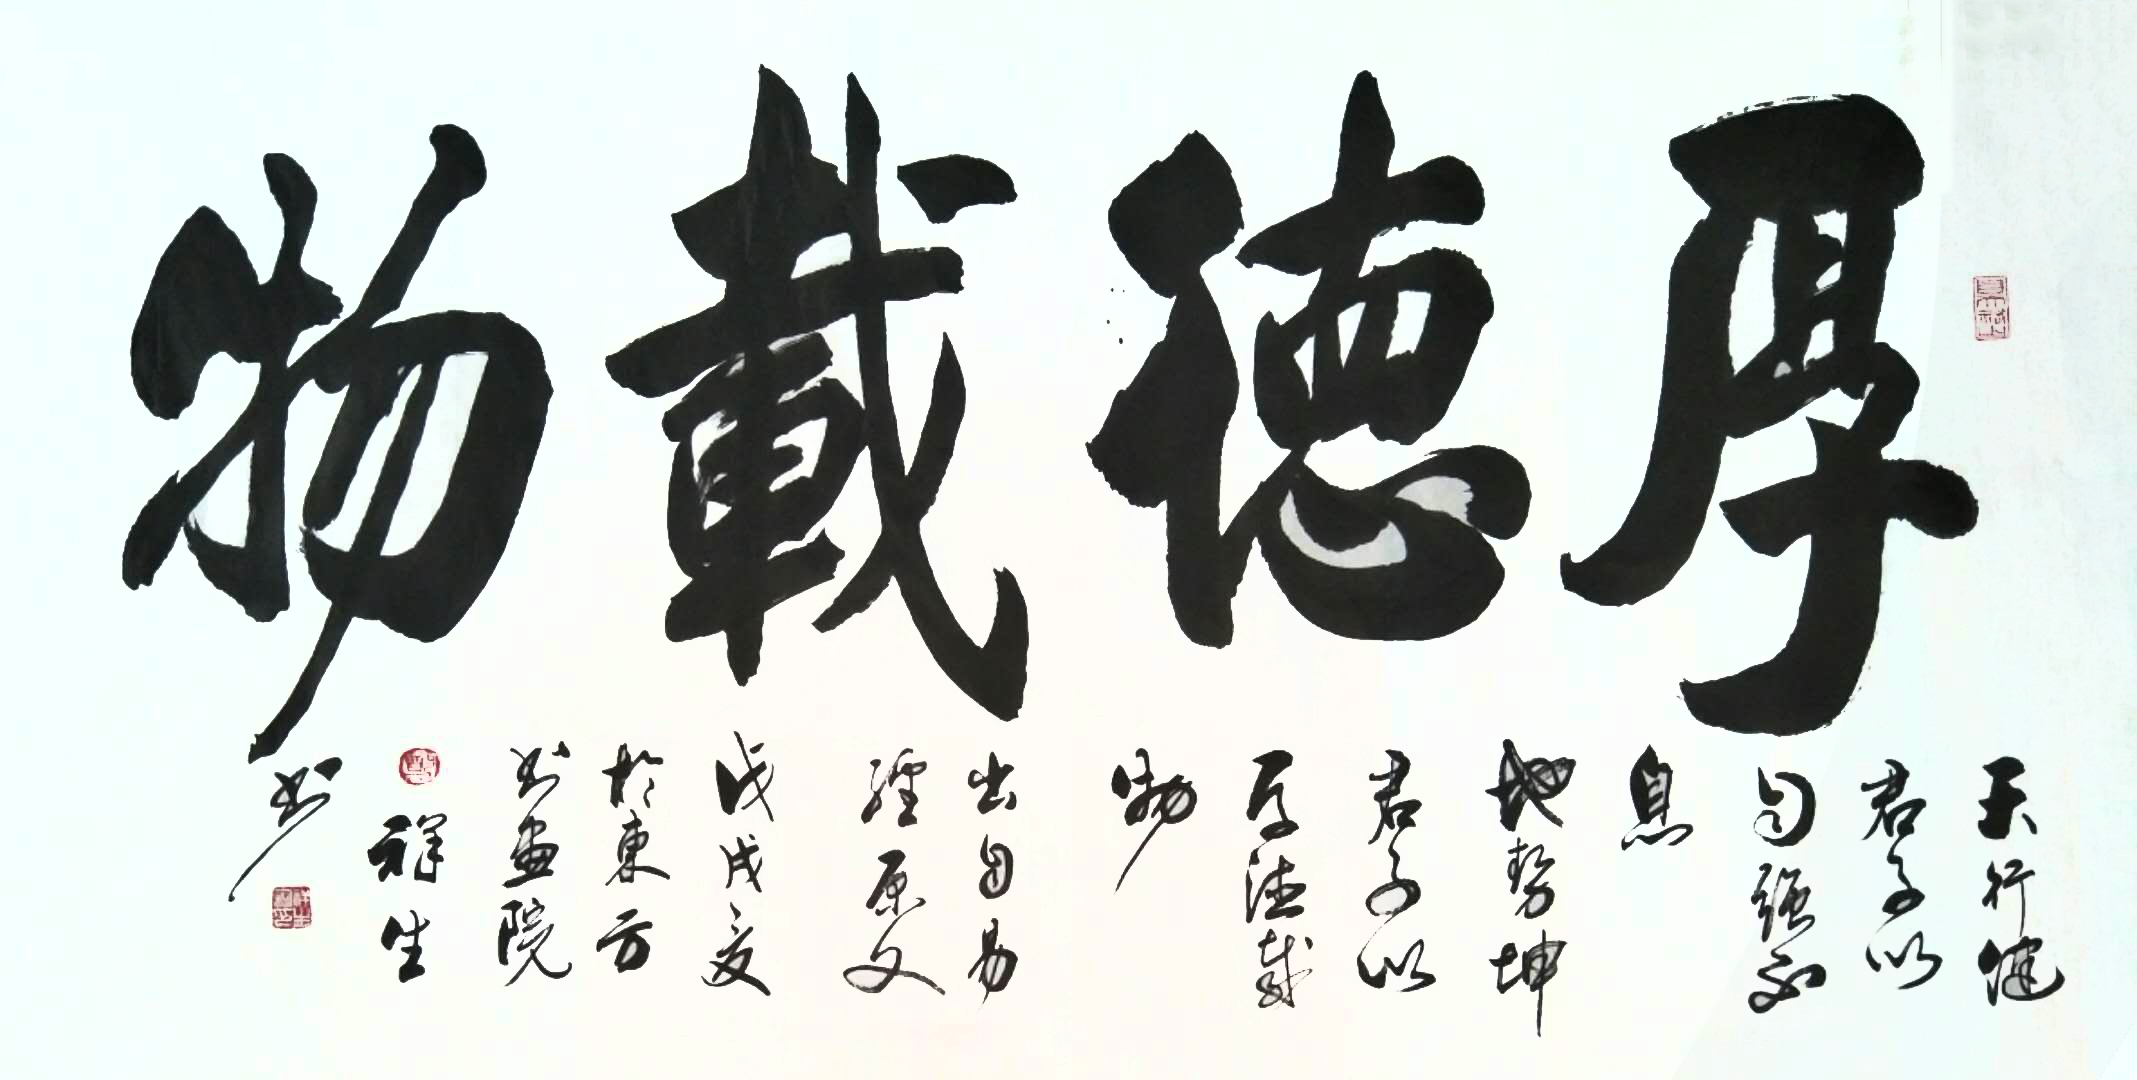 厚德載物
天行健
君子以
自强不
息
地势坤
君子以
厚德载
物
出自易
經原文
戊戌夏
於東方
书画院
祥生
书